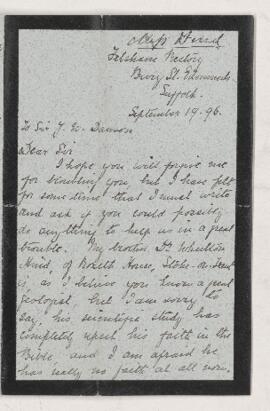 Miss Hind
Felsham Rectory
Bury St. Edmunds
Suffolk.
September 19. 96.
To Sir J. W. Dawson
Dear Sir
I hope you will forgive me
for troubling you, but I have felt
for some time that I must write
and ask if you could possibly
do anything to help us in a great
trouble. My brother, Dr Wheelton
Hind, of Roxeth House, Stoke-on-Trent
is, as I believe you know a great
geologist, but I am sorry to
say, his scientific study has
completely upset his faith in the
Bible and I am afraid he
has really no faith at all now.